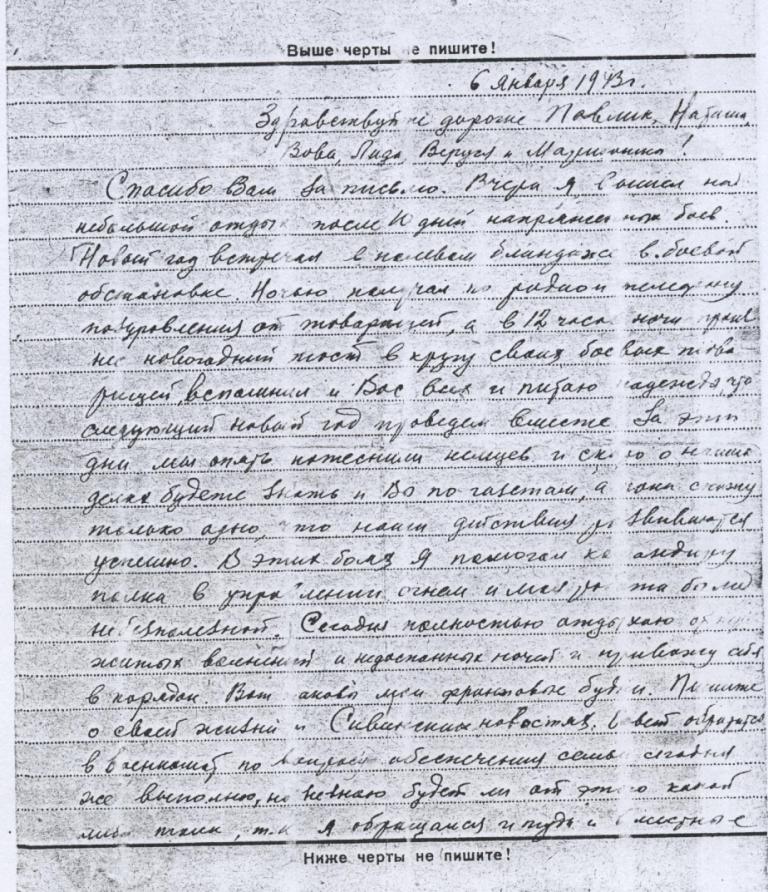 Выше черты не пишите!
6 января 1943 г.
Здравствуйте дорогие Павлик, Наташа,
Вова, Лида, Веруся и
Спасибо Вам за письмо. Вчера я вышел на
небольшой отдых после 10 дней напряженных боев.
Новый год встречал в полевом блиндаже в боевой
обстановке. Ночью получал по радио и телефону
поздравления от товарищей, а в 12 часов ночи произ
нес новогодний тост в кругу своих боевых това
рищей, вспомнил и Вас всех и питаю надежду, что
следующий новый год проведем вместе. За эти
дни мы опять потеснили немцев и скоро о наших
делах будете знать и Вы по газетам, а пока скажу
только одно, что наши действия развиваются
успешно. В этих боях я помогал командиру
полка в управлении огнем и моя работа была
не бесполезной. Сегодня полностью отдыхаю от пере
житых волнений и недоспанных ночей и привожу себя
в порядок. Вот таковы мои фронтовые будни. Пишите
о своей жизни и Сивинских новостях. Совет обратиться
в военкомат по вопросу обеспечения семьи сегодня
же выполню, но не знаю будет ли от этого какой
либо толк, т.к. я обращался и туда и в местные
Ниже черты не пишите!